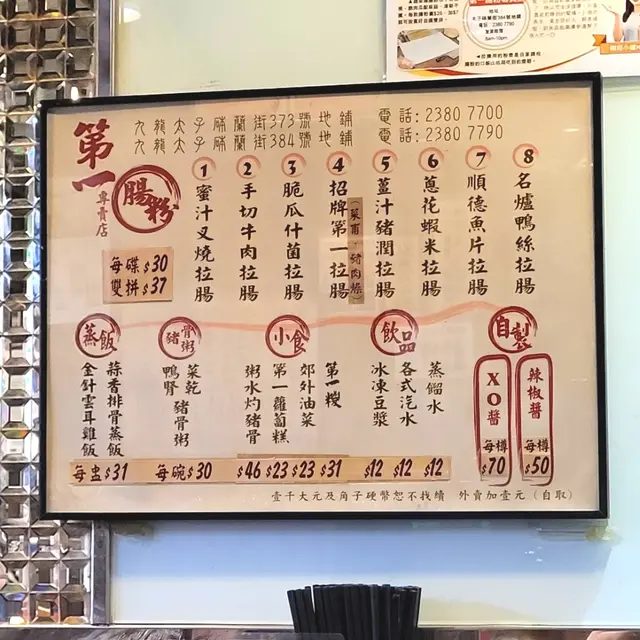 九龍太子砵蘭街373號地舖 電話:2380 7700
九龍太子砵蘭街384號地舖 電話:2380 7790
第一
腸粉
專賣店
每碟$30
雙拼$37
1 蜜汁叉燒拉腸
2 手切牛肉拉腸
3 脆瓜什菌拉腸
4 招牌第一拉腸
(菜甫,豬肉燥)
5 薑汁豬潤拉腸
6 蔥花蝦米拉腸
7 順德魚片拉腸
8 名爐鴨絲拉腸
蒸飯
蒜香排骨蒸飯
金針雲耳雞飯
每盅$31
豬骨粥
菜乾豬骨粥
鴨腎
每碗$30
小食
粥水灼豬骨 $46
第一蘿蔔糕 $23
郊外油菜 $23
第一糉 $31
飲品
冰凍豆漿 $12
各式汽水 $12
蒸餾水 $12
自製
XO醬
每樽
$70
辣椒醬
每樽
$50
壹千大元及角子硬幣恕不找續 外賣加壹元(自取)